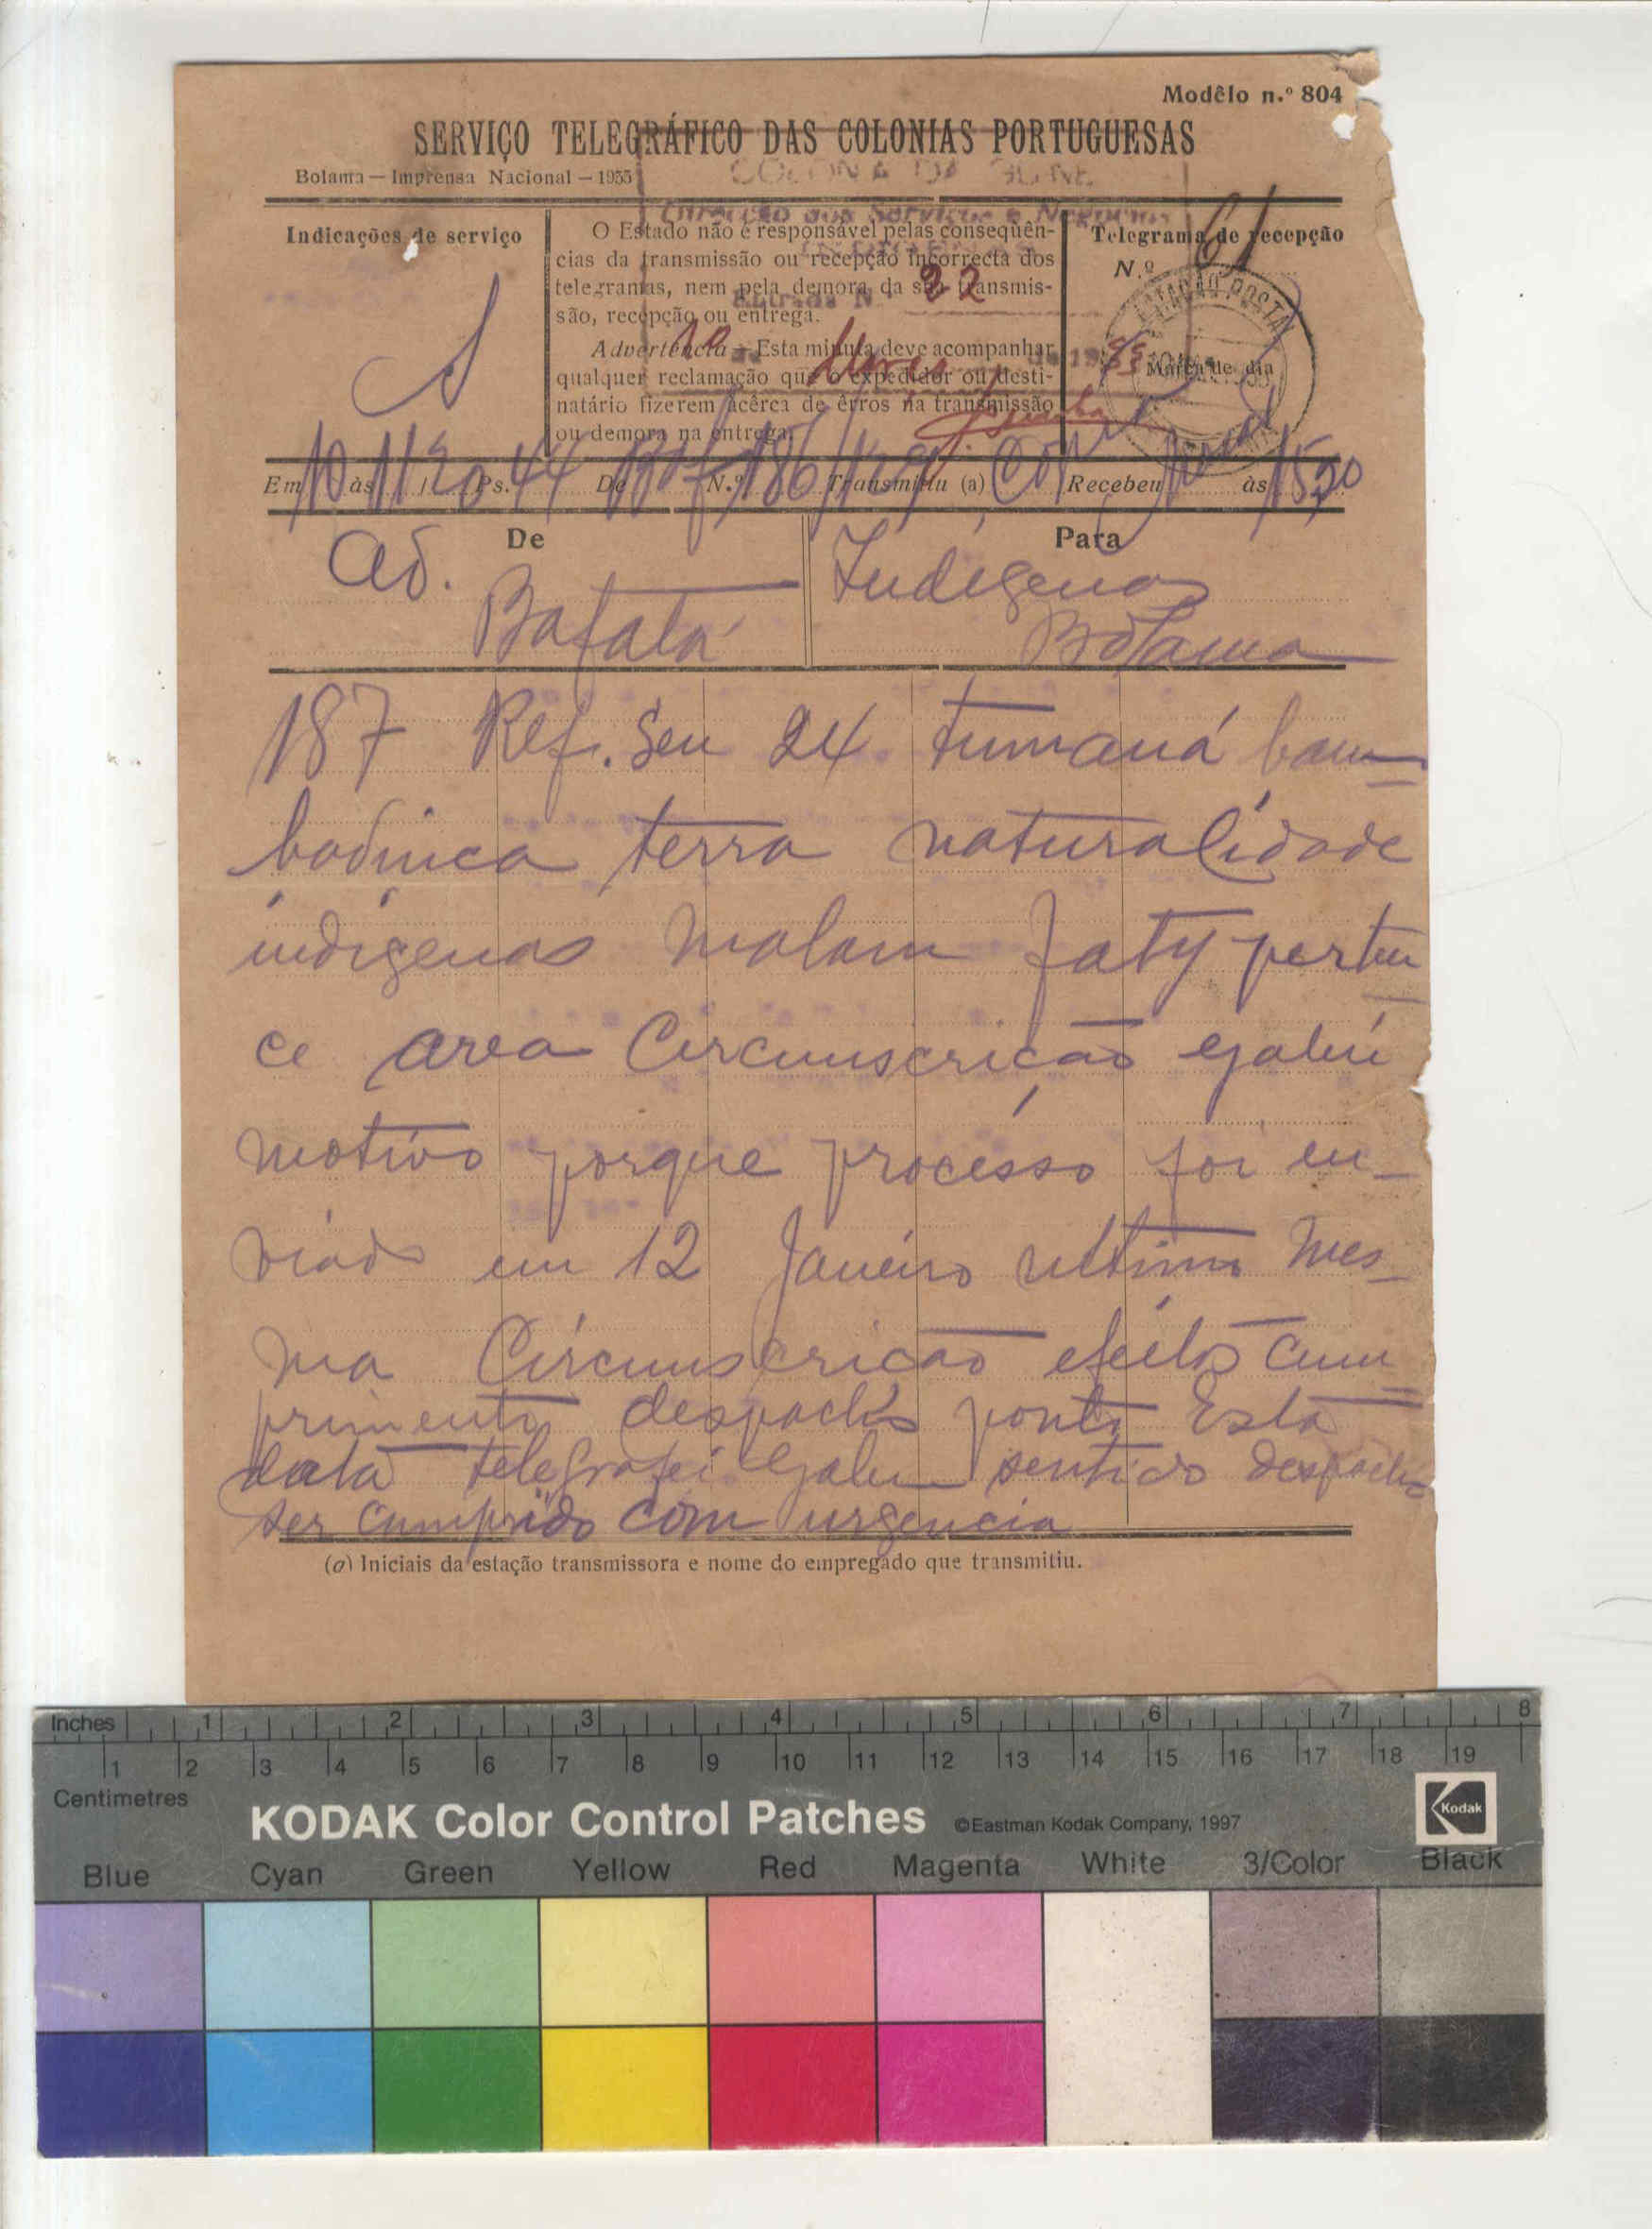 Modêlo n.º 804
SERVIÇO TELEGRÁFICO DAS COLONIAS PORTUGUESAS
Bolama — Imprensa Nacional — 1935
COLONIA DA GUINÉ
Direcção dos Serviços e Negocios
Indicações de serviço
O Estado não é responsável pelas conseqüên-
cias da transmissão ou recepção incorrecta dos
telegramas, nem pela demora da sua transmis-
são, recepção ou entrega.
Advertência — Esta minuta deve acompanhar
qualquer reclamação que o expedidor ou desti-
natário fizerem àcêrca de êrros na transmissão
ou demora na entrega.
Entrada N. 22
10 Março
Telegrama de recepção
N.º 61
Marca de dia
Em 10 às 1120 Ps. 44 De Baf N.º 186 Transmitiu (a) Recebeu às 1520
De
Ad.
Bafatá
Para
Indigenas
Bolama
187 Ref. Seu 24 tumaná bam-
badinca terra naturalidade
indigenas malam faty perten
ce area Circunscrição gabú
motivo porque processo foi en-
viado em 12 Janeiro ultimo mes-
ma Circunscricão efeitos cum
primento despachos ponto Esta
data telegrafei Gabu sentido despacho
ser cumprido com urgencia
(a) Iniciais da estação transmissora e nome do empregado que transmitiu.
Inches 1 2 3 4 5 6 7 8
1 2 3 4 5 6 7 8 9 10 11 12 13 14 15 16 17 18 19
Centimetres
KODAK Color Control Patches ©Eastman Kodak Company, 1997 Kodak
Blue Cyan Green Yellow Red Magenta White 3/Color Black